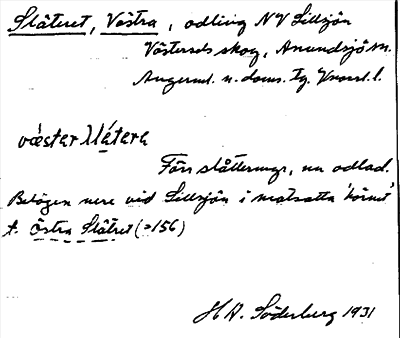 Slåttret, Västra, odling NV Lillsjön
Västersels skog, Anundsjö sn.
Ångerml. n. doms. tg. Vnorrl. l.
væster
Förr slåtterängs, nu odlad.
Belägen nere vid Lillsjön i motsatta 'hörnet'
t. Östra Slåttret (=156)
H A. Söderberg 1931